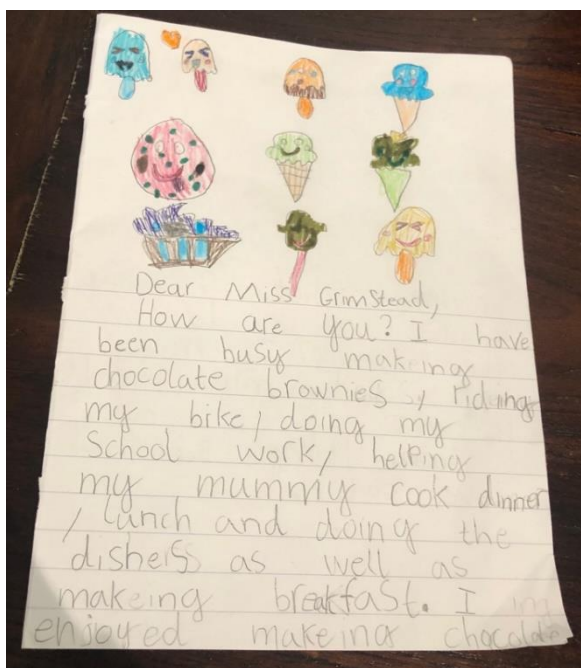 Dear Miss Grimstead,
How are you? I have
been busy makeing
chocolate brownies, riding
my bike, doing my
School work, helping
my mummy cook dinner
, lunch and doing the
disheis as well as
makeing breakfast. I
enjoyed makeing chocolate